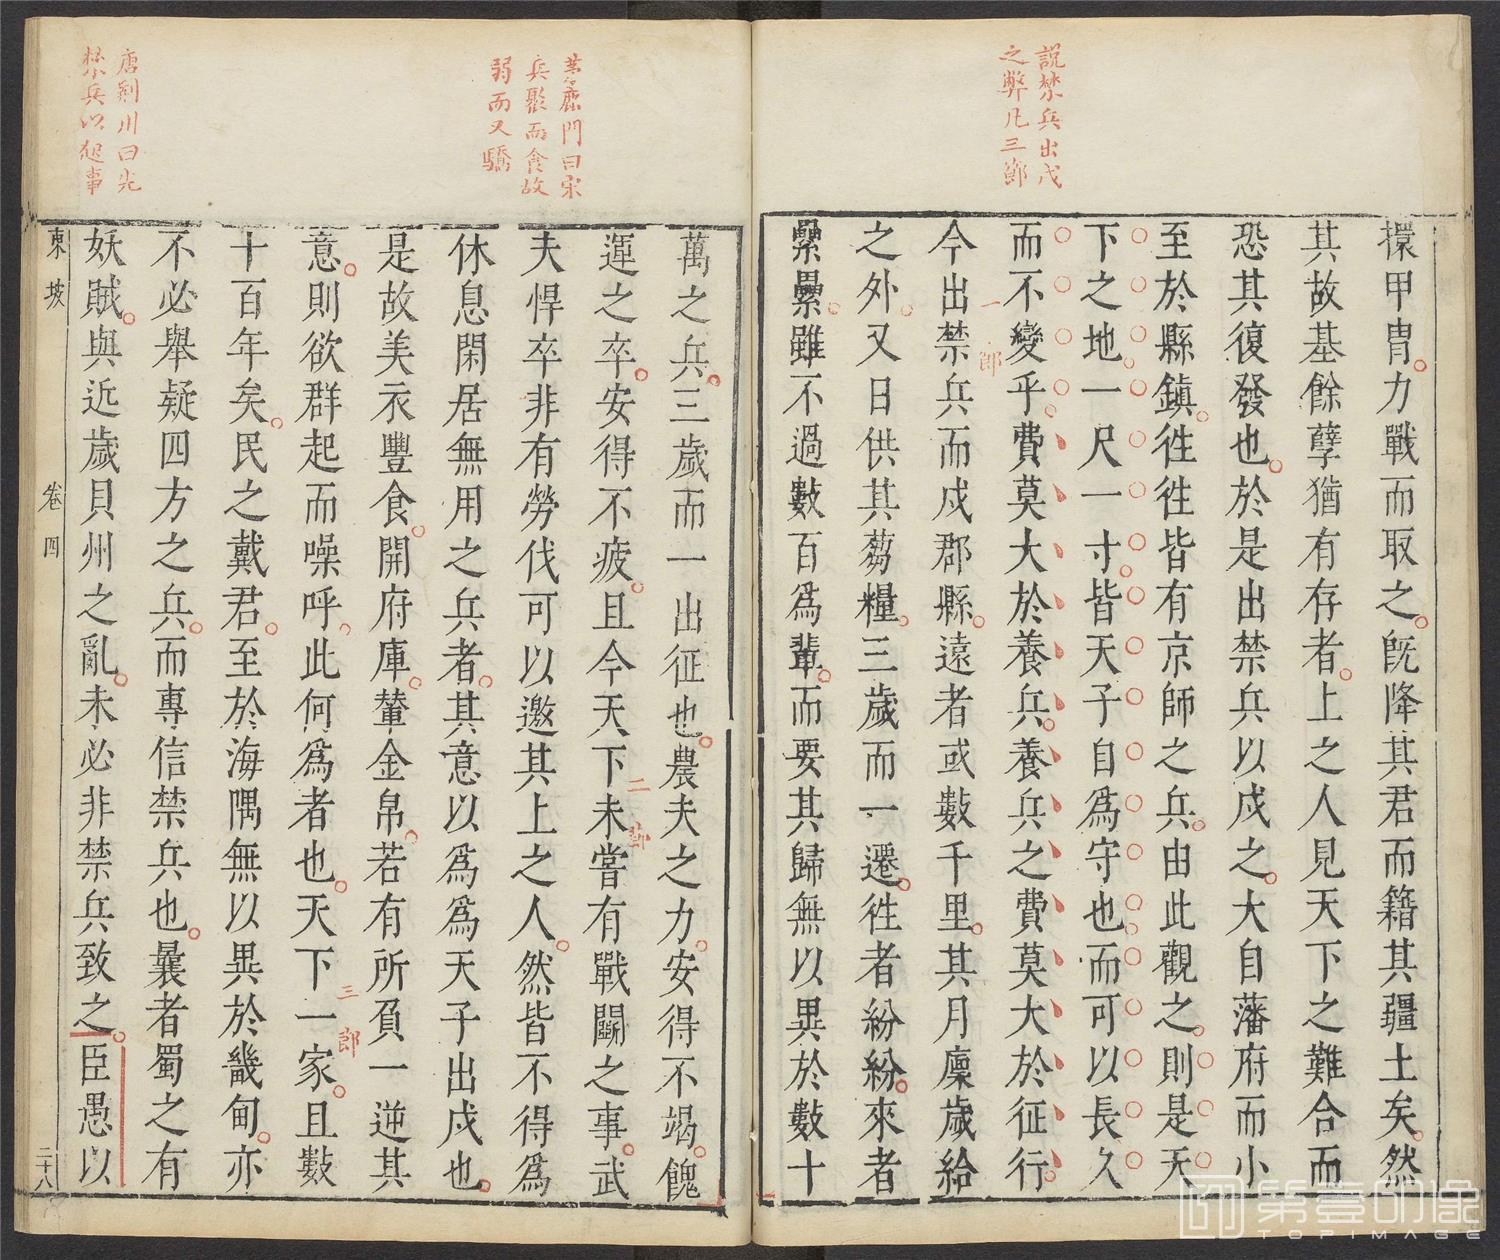 說禁兵出戍
之弊凡三節
擐甲胄力戰而取之既降其君而籍其疆土矣然
其故基餘孽猶有存者上之人見天下之難合而
恐其復發也於是出禁兵以戍之大自藩府而小
至於縣鎮徃徃皆有京師之兵由此觀之則是天
下之地一尺一寸皆天子自為守也而可以長久
而不變乎費莫大於養兵養兵之費莫大於征行
一節
今出禁兵而戍郡縣遠者或數千里其月廩歲給
之外又日供其芻糧三歲而一遷徃者紛紛來者
纍纍雖不過數百為輩而要其歸無以異於數十
茅鹿門曰宋
兵聚而食故
弱而又驕
萬之兵三歲而一出征也農夫之力安得不竭餽
運之卒安得不疲且今天下未嘗有戰鬬之事武
二節
夫悍卒非有勞伐可以邀其上之人然皆不得為
休息閑居無用之兵者其意以為為天子出戍也
是故美衣豐食開府庫輦金帛若有所負一逆其
意則欲群起而噪呼此何為者也天下一家且數
三節
十百年矣民之戴君至於海隅無以異於畿甸亦
不必舉疑四方之兵而專信禁兵也曩者蜀之有
妖賊與近歲貝州之亂未必非禁兵致之臣愚以
唐荆川曰先
禁兵以起事
東坡
卷四
二十八
第壹印像
TOPIMAGE